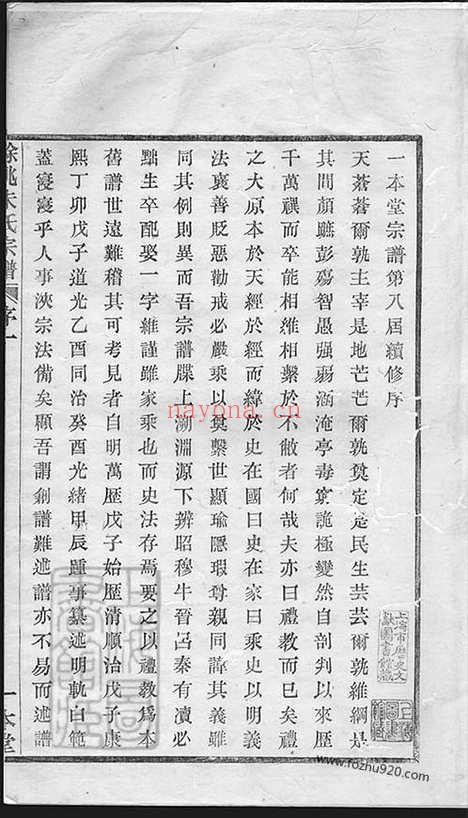 一本堂宗譜第八屆續修序
天蒼蒼爾孰主宰是地芒芒爾孰奠定是民生芸芸爾孰維綱是
其間顏蹠彭殤智愚強弱涵淹亭毒寰詭極變然自剖判以來歷
千萬禩而卒能相維相繫於不敝者何哉夫亦曰禮教而已矣禮
之大原本於天經於經而緯於史在國曰史在家曰乘史以明義
法褒善貶惡勸戒必嚴乘以奠繫世顯瑜隱瑕尊親同諱其義雖
同其例則異而吾宗譜牒上溯淵源下辨昭穆牛晉呂秦有瀆必
黜生卒配娶一字維謹雖家乘也而史法存焉要之以禮教為本
舊譜世遠難稽其可考見者自明萬歷戊子始歷清順治戊子康
熙丁卯戊子道光乙酉同治癸酉光緒甲辰踵事纂述明軌白範
蓋寖寖乎人事浹宗法備矣顧吾謂創譜難述譜亦不易而述譜
餘姚朱氏宗譜
序一
一本堂
上海市歷史文獻圖書館藏
nayona.cn
www.fozhu920.com